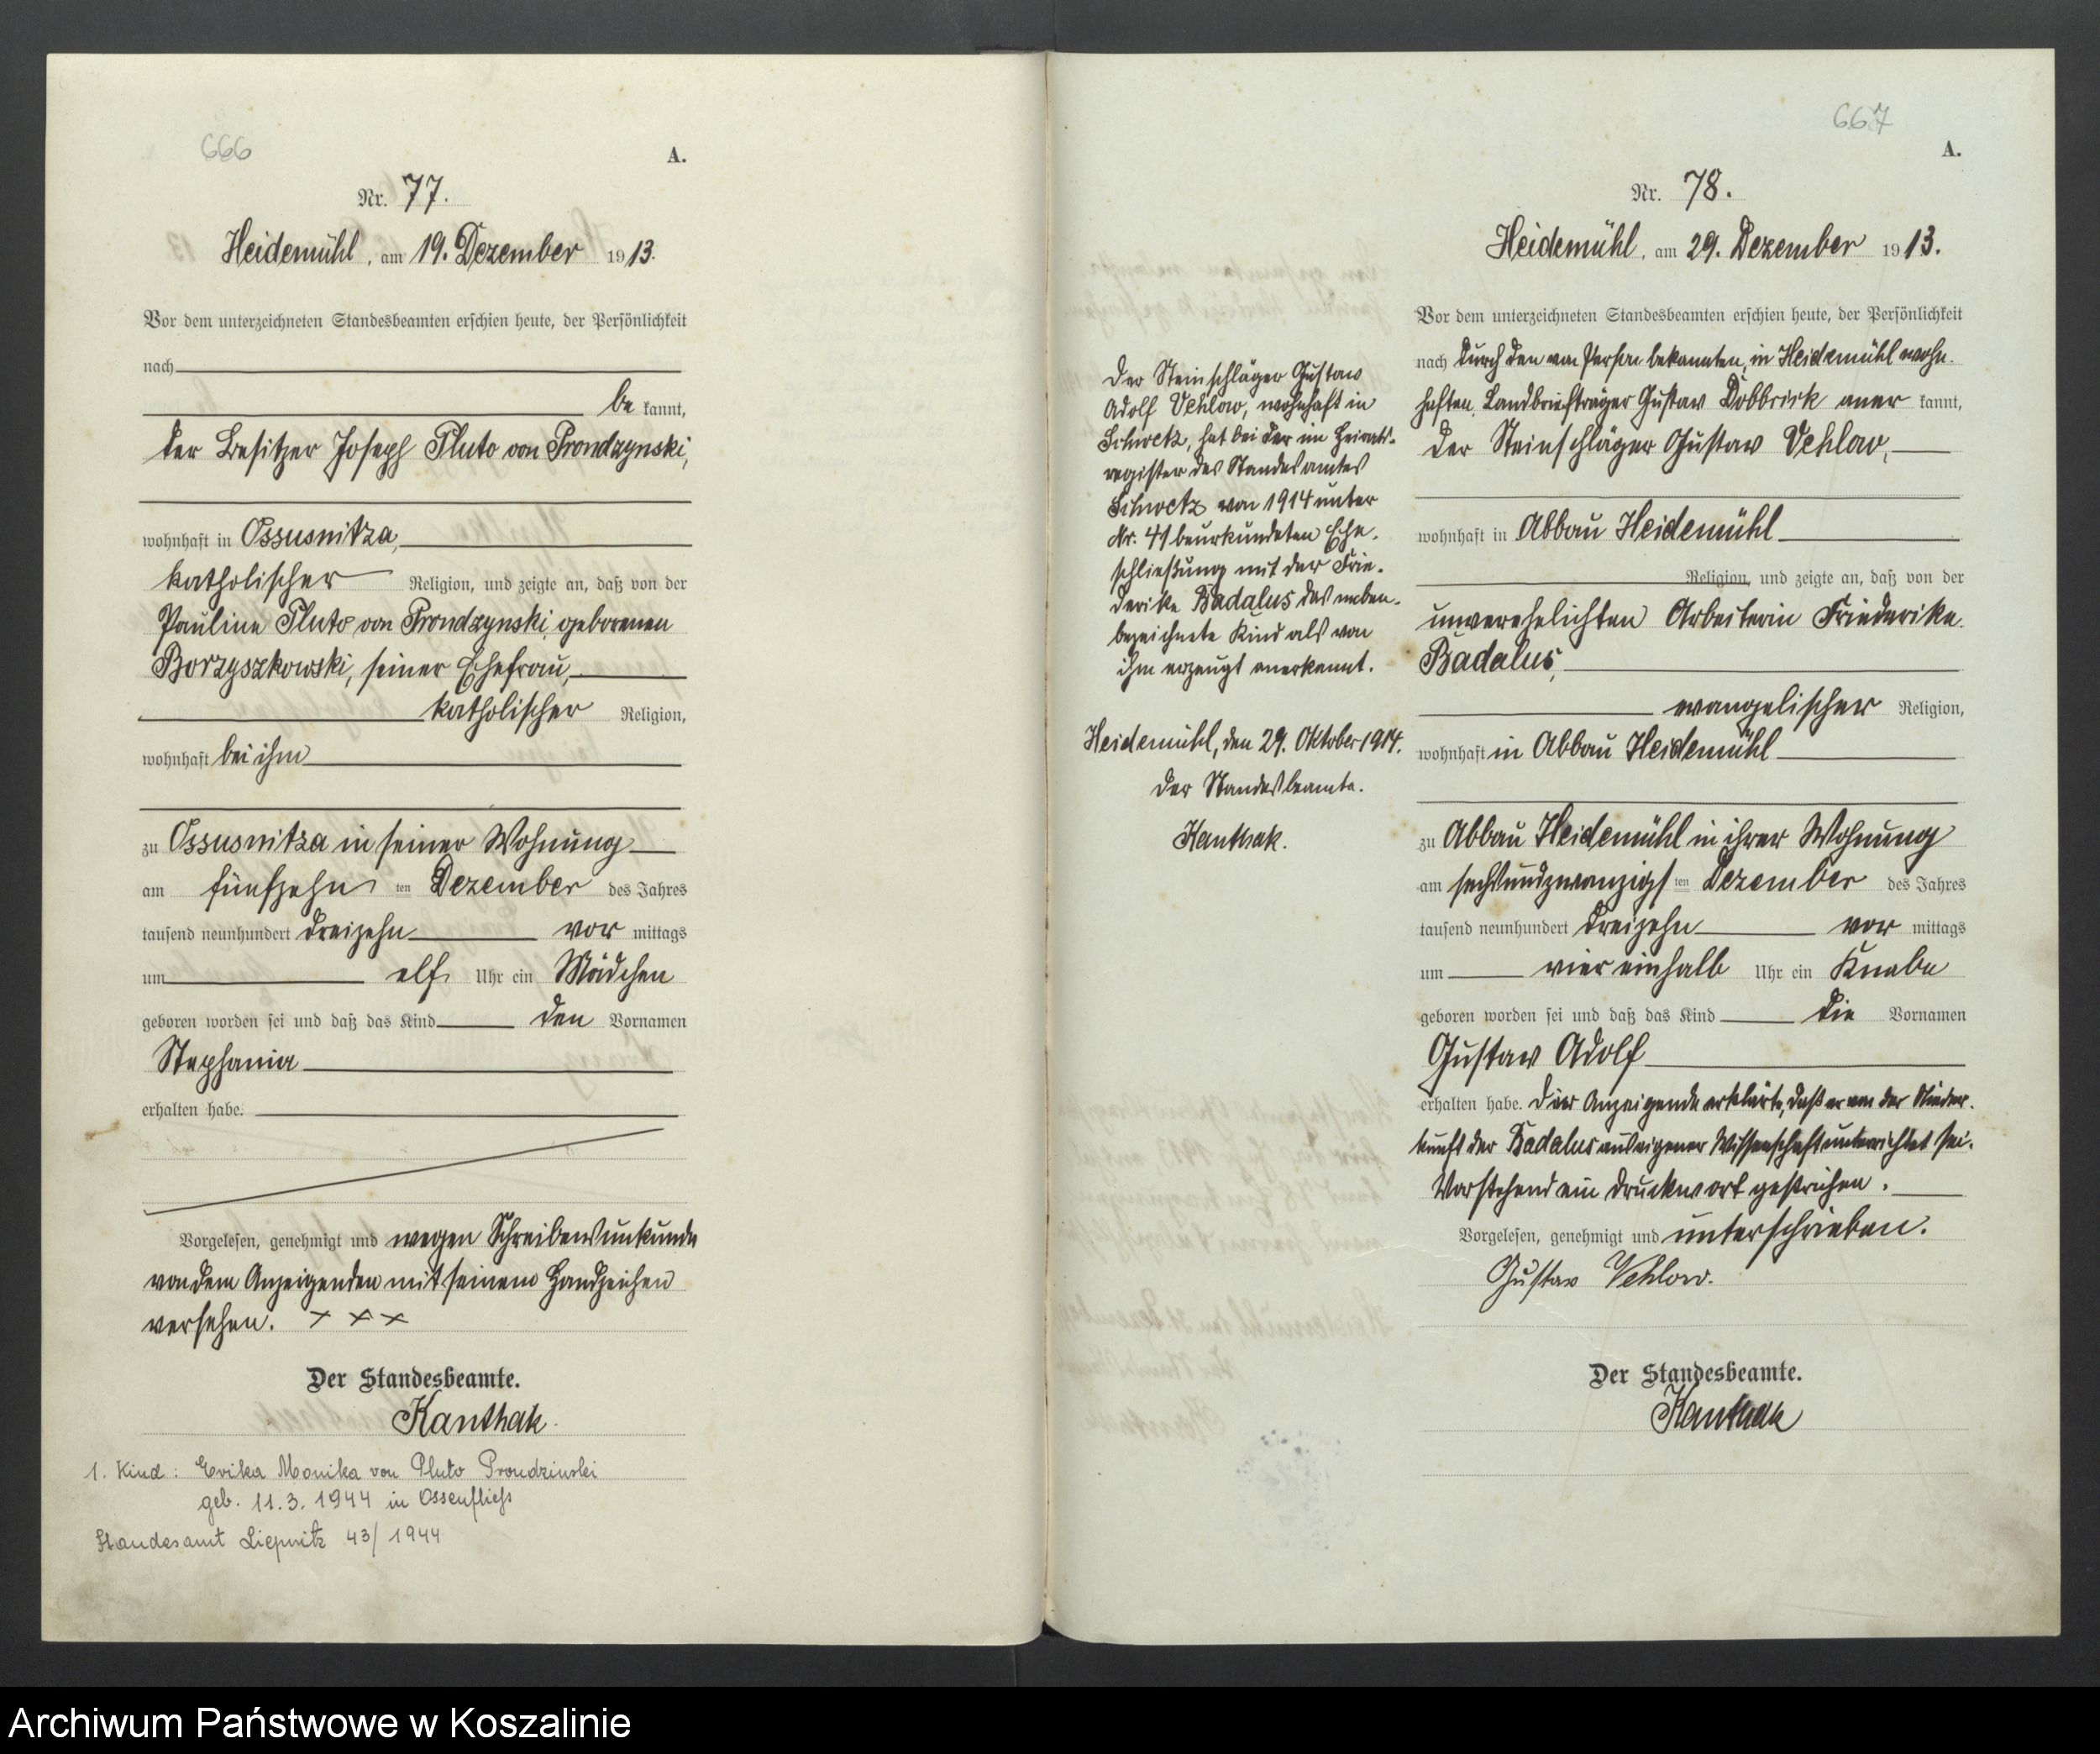 666
A.
Nr. 77.
Heidemühl, am 19. Dezember 1913.
Vor dem unterzeichneten Standesbeamten erschien heute, der Persönlichkeit
nach
be kannt,
der Besitzer Joseph Pluto von Prondzynski,
wohnhaft in Ossusnitza,
katholischer Religion, und zeigte an, daß von der
Pauline Pluto von Prondzynski, geborenen
Borzyszkowski, seiner Ehefrau,
katholischer Religion,
wohnhaft bei ihm
zu Ossusnitza in seiner Wohnung
am fünfzehn ten Dezember des Jahres
tausend neunhundert dreizehn vor mittags
um elf Uhr ein Mädchen
geboren worden sei und daß das Kind den Vornamen
Stephania
erhalten habe.
Vorgelesen, genehmigt und wegen Schreibensunkunde
von dem Anzeigenden mit seinem Handzeichen
versehen. + + +
Der Standesbeamte.
Kanthak.
1. Kind: Erika Monika von Pluto Prondzinski
geb. 11.3.1944 in Ossenfliess
Standesamt Liepnitz 43/1944
667
A.
Nr. 78.
Heidemühl, am 29. Dezember 1913.
Vor dem unterzeichneten Standesbeamten erschien heute, der Persönlichkeit
nach durch den von Person bekannten, in Heidemühl wohn-
haften Landbriefträger Gustav Dobbrick aner kannt,
der Steinschläger Gustav Vehlow,
wohnhaft in Abbau Heidemühl
Religion, und zeigte an, daß von der
unverehelichten Arbeiterin Friederike
Badalus,
evangelischer Religion,
wohnhaft in Abbau Heidemühl
zu Abbau Heidemühl in ihrer Wohnung
am sechsundzwanzigs ten Dezember des Jahres
tausend neunhundert dreizehn vor mittags
um vier einhalb Uhr ein Knabe
geboren worden sei und daß das Kind die Vornamen
Gustav Adolf
erhalten habe. Der Anzeigende erklärte, daß er von der Nieder-
kunft der Badalus aus eigener Wissenschaft unterrichtet sei.
Vorstehend ein Druckwort gestrichen.
Vorgelesen, genehmigt und unterschrieben.
Gustav Vehlow.
Der Standesbeamte.
Kanthak
Der Steinschläger Gustav
Adolf Vehlow, wohnhaft in
Schwetz, hat bei der im Heirats-
register des Standesamtes
Schwetz von 1914 unter
Nr. 41 beurkundeten Ehe-
schließung mit der Frie-
derike Badalus das neben-
bezeichnete Kind als von
ihm erzeugt anerkannt.
Heidemühl, den 29. Oktober 1914.
Der Standesbeamte.
Kanthak.
Archiwum Państwowe w Koszalinie